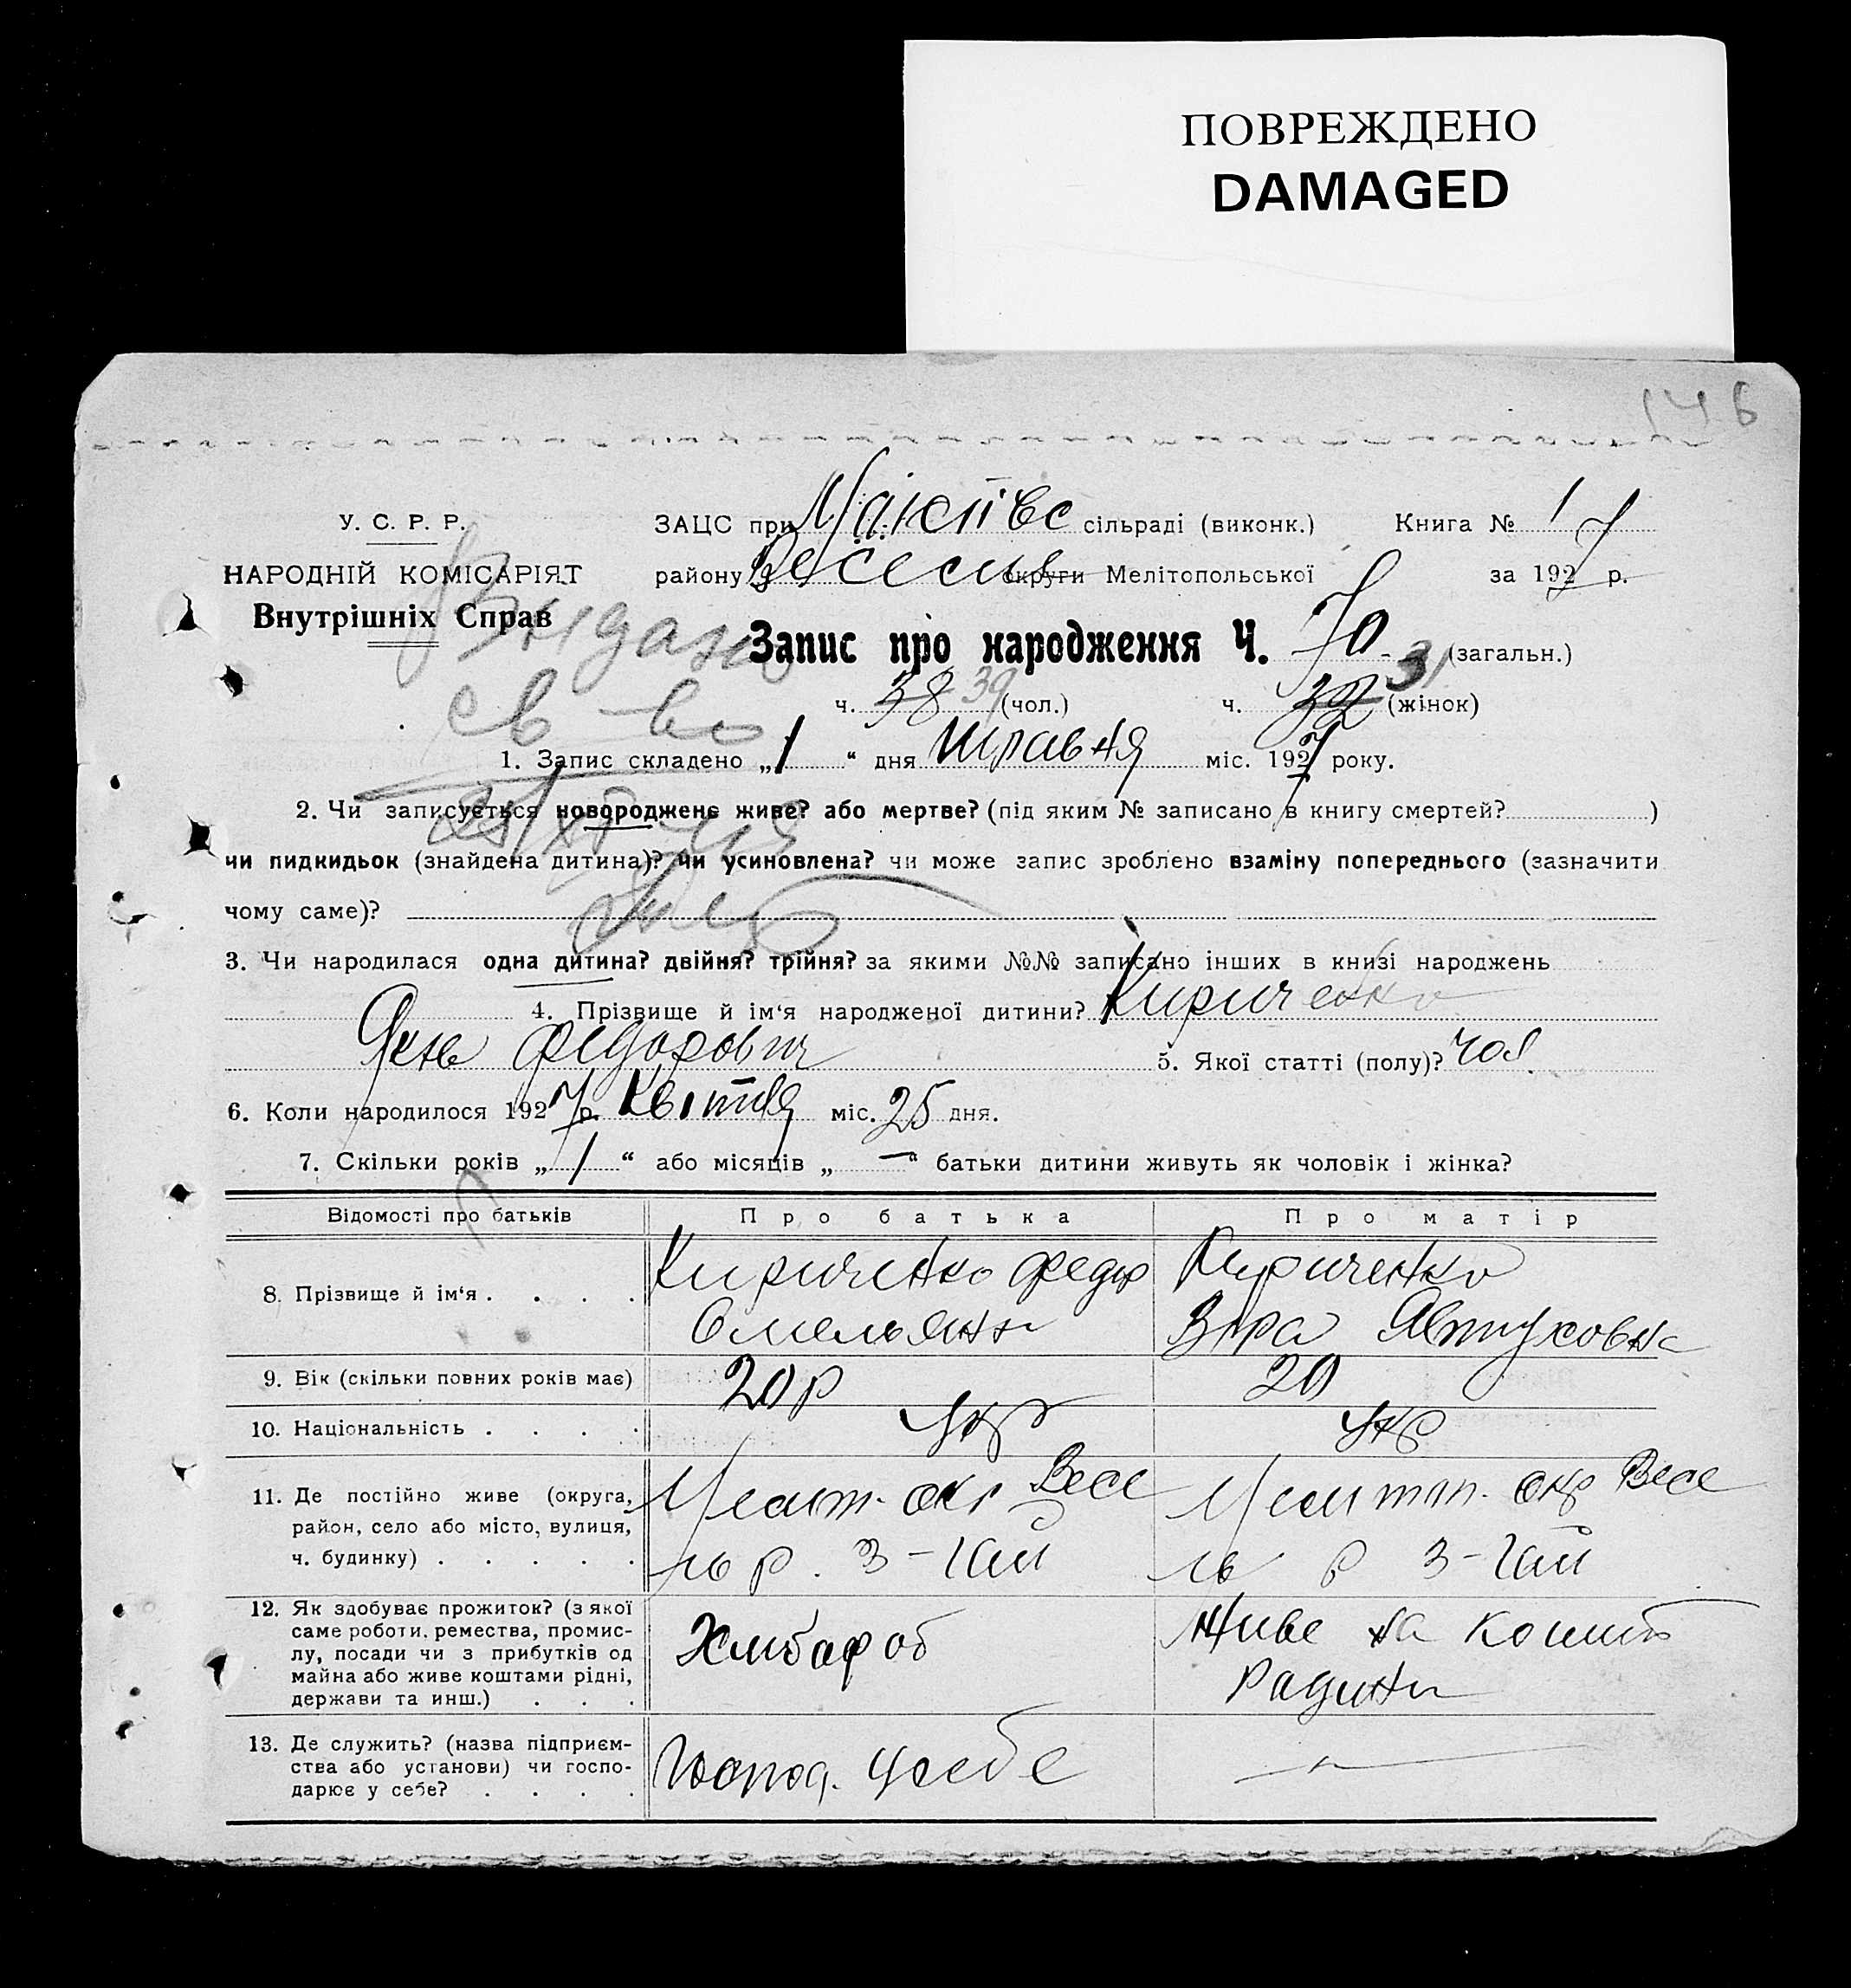 ПОВРЕЖДЕНО
DAMAGED
146
У. С. Р. Р.
НАРОДНІЙ КОМІСАРІЯТ
Внутрішніх Справ
ЗАЦС при сільраді (виконк.) Книга № 1
району округи Мелітопольської за 1927 р.
Запис про народження Ч. 70 (загальн.)
ч. 38 39 (чол.) ч. 32 31 (жінок)
Видано
св-во
1. Запис складено „1“ дня травня міс. 1927 року.
2. Чи записується новороджене живе? або мертве? (під яким № записано в книгу смертей? )
чи пидкидьок (знайдена дитина)? чи усиновлена? чи може запис зроблено взаміну попереднього (зазначити
чому саме)?
3. Чи народилася одна дитина? двійня? трійня? за якими №№ записано інших в книзі народжень
4. Прізвище й ім‘я народженої дитини? Кириченко
Федорович 5. Якої статті (полу)? чол
6. Коли народилося 1927 р. Квітня міс. 25 дня.
7. Скільки років „1“ або місяців „—“ батьки дитини живуть як чоловік і жінка?
Відомості про батьків Про батька Про матір
8. Прізвище й ім‘я . . . . Кириченко Федор Кириченко
Омельян Віра Явтуховна
9. Вік (скільки повних років має) 20 р 20
10. Національність . . . . Укр Укр
11. Де постійно живе (округа, Мелит. окр Весе Мелитоп. окр Весе
район, село або місто, вулиця,
ч. будинку) . . . . . ль р. З-Гай ль р З-Гай
12. Як здобуває прожиток? (з якої
саме роботи, ремества, промис- Хлибороб Живе на кошти
лу, посади чи з прибутків од
майна або живе коштами рідні, Родини
держави та инш.) . . .
13. Де служить? (назва підприєм-
ства або установи) чи госпо- Господ. у себе —
дарює у себе? . . . .